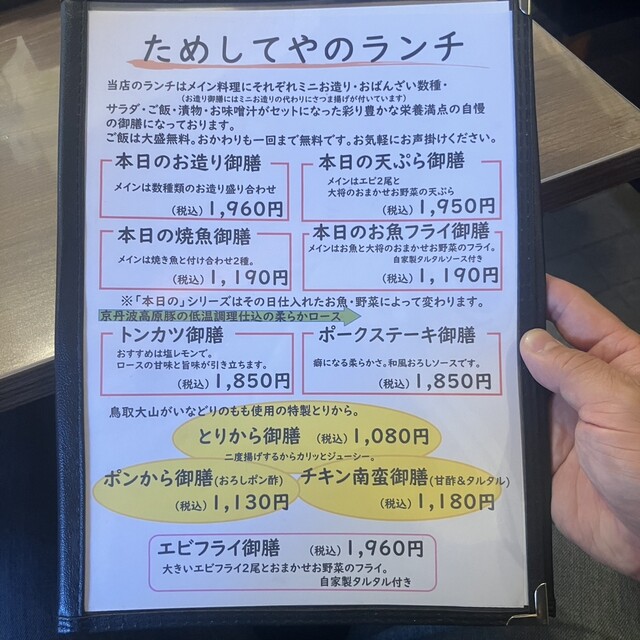 ためしてやのランチ
当店のランチはメイン料理にそれぞれミニお造り・おばんざい数種・
(お造り御膳にはミニお造りの代わりにさつま揚げが付いています)
サラダ・ご飯・漬物・お味噌汁がセットになった彩り豊かな栄養満点の自慢
の御膳になっております。
ご飯は大盛無料。おかわりも一回まで無料です。お気軽にお声掛けください。
本日のお造り御膳
メインは数種類のお造り盛り合わせ
(税込)1,960円
本日の天ぷら御膳
メインはエビ2尾と
大将のおまかせお野菜の天ぷら
(税込)1,950円
本日の焼魚御膳
メインは焼き魚と付け合わせ2種。
(税込)1,190円
本日のお魚フライ御膳
メインはお魚と大将のおまかせお野菜のフライ。
自家製タルタルソース付き
(税込)1,190円
※「本日の」シリーズはその日仕入れたお魚・野菜によって変わります。
京丹波高原豚の低温調理仕込の柔らかロース
トンカツ御膳
おすすめは塩レモンで。
ロースの甘味と旨味が引き立ちます。
(税込)1,850円
ポークステーキ御膳
癖になる柔らかさ。和風おろしソースです。
(税込)1,850円
鳥取大山がいなどりのもも使用の特製とりから。
とりから御膳 (税込)1,080円
二度揚げするからカリッとジューシー。
ポンから御膳(おろしポン酢)
(税込)1,130円
チキン南蛮御膳(甘酢&タルタル)
(税込)1,180円
エビフライ御膳 (税込)1,960円
大きいエビフライ2尾とおまかせお野菜のフライ。
自家製タルタル付き